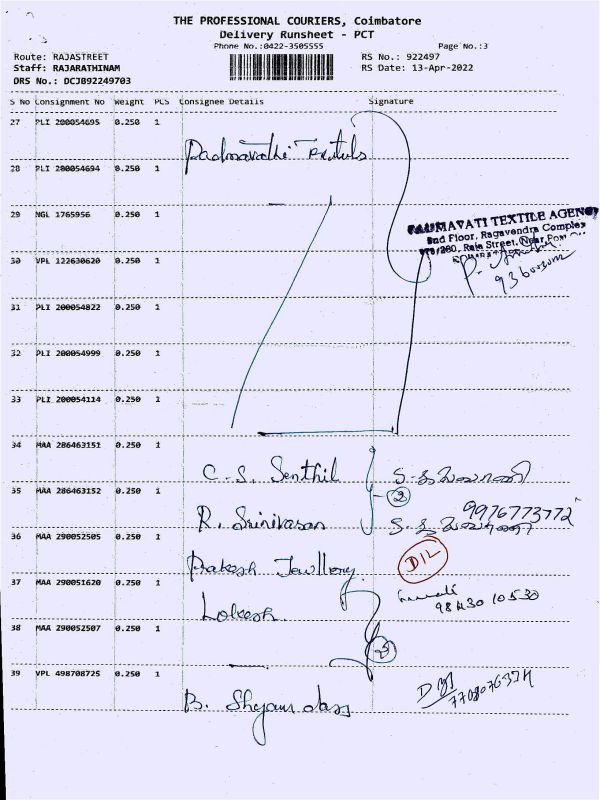 THE PROFESSIONAL COURIERS, Coimbatore
Delivery Runsheet - PCT
Phone No.:0422-3505555
Page No.:3
Route: RAJASTREET
RS No.: 922497
Staff: RAJARATHINAM
RS Date: 13-Apr-2022
DRS No.: DCJB92249703
S No Consignment No Weight PCS Consignee Details Signature
27 PLI 200054695 0.250 1
Padmavathi
28 PLI 200054694 0.250 1
29 NGL 1765956 0.250 1
PADMAVATI TEXTILE AGENCY
2nd Floor, Ragavendra Complex
Raja Street, Near Post
30 VPL 122630620 0.250 1
31 PLI 200054822 0.250 1
32 PLI 200054999 0.250 1
33 PLI 200054114 0.250 1
34 MAA 286463151 0.250 1
C. S. Senthil
35 MAA 286463152 0.250 1
2
9976773772
R. Srinivasan
36 MAA 290052505 0.250 1
Prakash Jewllery
D/L
37 MAA 290051620 0.250 1
98430 10530
Lokesh.
38 MAA 290052507 0.250 1
39 VPL 498708725 0.250 1
B. Shyam dass